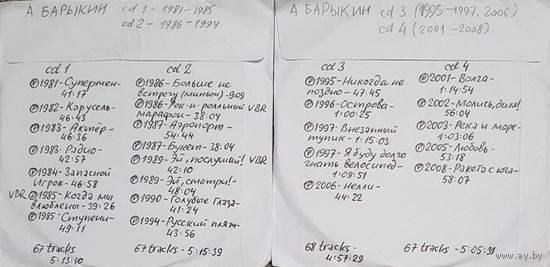 А. БАРЫКИН cd 1 - 1981-1985
cd 2 - 1986-1994
cd 1
℗1981-Супермен-
41:17
℗1982-Карусель-
46:43
℗1983-Актёр-
46:36
℗1983-Радио-
42:57
℗1984-Запасной
Игрок-46:58
VBR ℗1985-Когда мы
влюблены-39:26
℗1985-Ступени-
49:11
67 tracks
5:13:10
cd 2
℗1986-Больше не
встречу (миньон)-9:09
℗1986-Рок-н-ролльный VBR
марафон-38:04
℗1987-Аэропорт-
54:44
℗1987-Букет-38:04
℗1989-Эй, послушай! VBR
42:10
℗1989-Эй, смотри!-
48:04
℗1990-Голубые глаза-
41:24
℗1994-Русский пляж-
43:56
67 tracks-5:15:39
А. БАРЫКИН cd 3 (1995-1997, 2006)
cd 4 (2001-2008)
cd 3
℗1995-Никогда не
поздно-47:45
℗1996-Острова-
1:00:25
℗1997-Внезапный
тупик-1:15:03
℗1997-Я буду долго
гнать велосипед-
1:09:51
℗2006-Нелли-
44:22
68 tracks
4:57:29
cd 4
℗2001-Волга-
1:14:54
℗2002-Молись, дитя!
56:04
℗2003-Река и море-
1:03:06
℗2005-Любовь-
53:18
℗2008-Ракета с юга-
58:07
67 tracks-5:05:31
www.ay.by